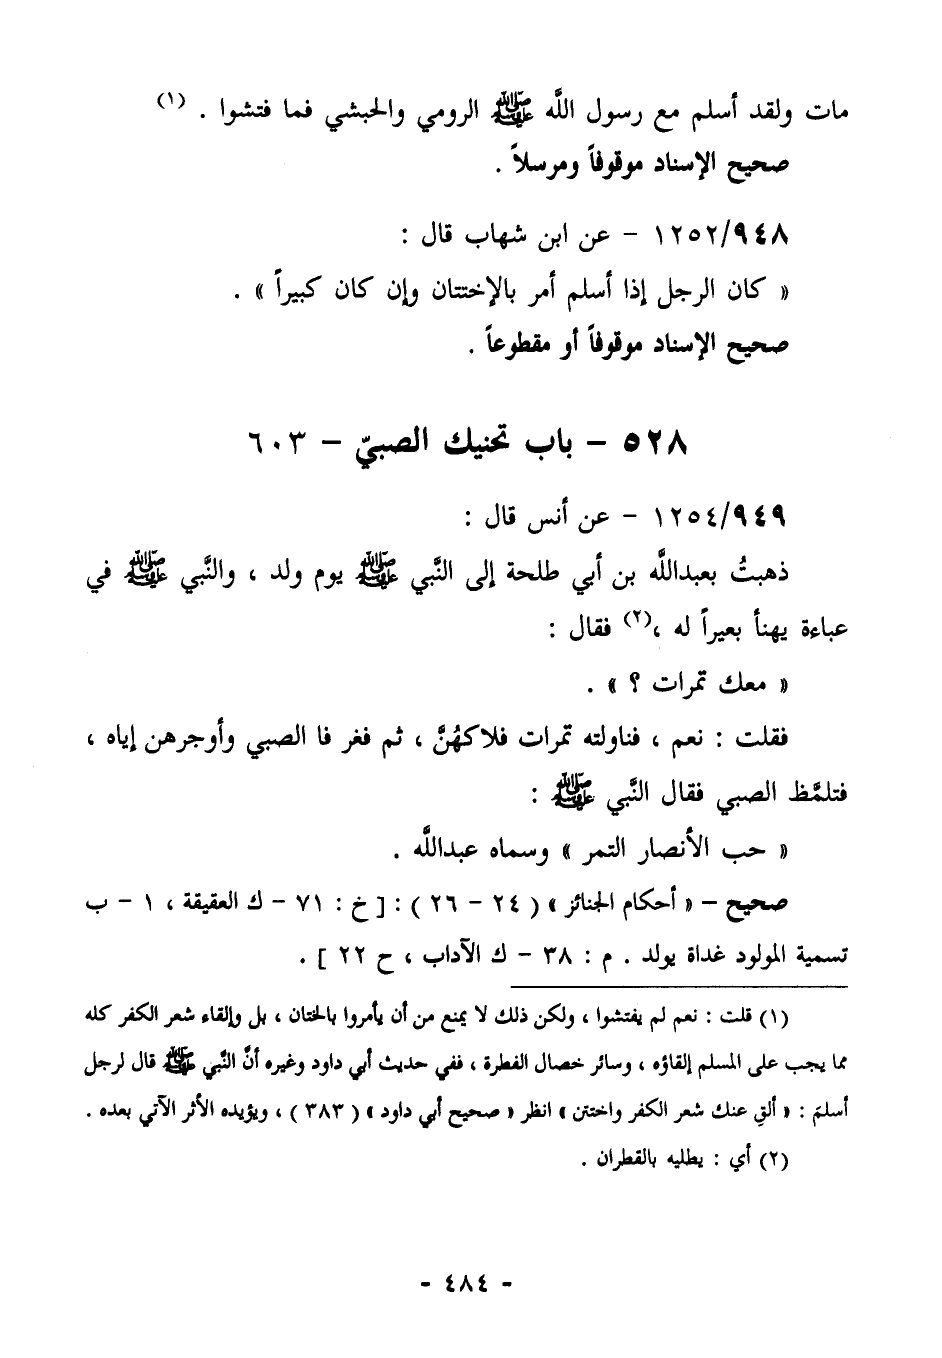 مات ولقد أسلم مع رسول اللَّه ﷺ الرومي والحبشي فما فتشوا . (١)
صحيح الإسناد موقوفاً ومرسلاً .
١٢٥٢/٩٤٨ – عن ابن شهاب قال :
« كان الرجل إذا أسلم أمر بالإختتان وإن كان كبيراً » .
صحيح الإسناد موقوفاً أو مقطوعاً .
٥٢٨ – باب تحنيك الصبيّ – ٦٠٣
١٢٥٤/٩٤٩ – عن أنس قال :
ذهبتُ بعبداللَّه بن أبي طلحة إلى النَّبي ﷺ يوم ولد ، والنَّبي ﷺ في
عباءة يهنأ بعيراً له ،(٢) فقال :
« معك تمرات ؟ » .
فقلت : نعم ، فناولته تمرات فلاكهُنَّ ، ثم فغر فا الصبي وأوجرهن إياه ،
فتلمَّظ الصبي فقال النَّبي ﷺ :
« حب الأنصار التمر » وسماه عبداللَّه .
صحيح – « أحكام الجنائز » ( ٢٤ – ٢٦ ) : [ خ : ٧١ – ك العقيقة ، ١ – ب
تسمية المولود غداة يولد . م : ٣٨ – ك الآداب ، ح ٢٢ ] .
(١) قلت : نعم لم يفتشوا ، ولكن ذلك لا يمنع من أن يأمروا بالختان ، بل وإلقاء شعر الكفر كله
مما يجب على المسلم إلقاؤه ، وسائر خصال الفطرة ، ففي حديث أبي داود وغيره أنَّ النَّبي ﷺ قال لرجل
أسلم : « ألقِ عنك شعر الكفر واختتن » انظر « صحيح أبي داود » ( ٣٨٣ ) ، ويؤيده الأثر الآتي بعده .
(٢) أي : يطليه بالقطران .
- ٤٨٤ -